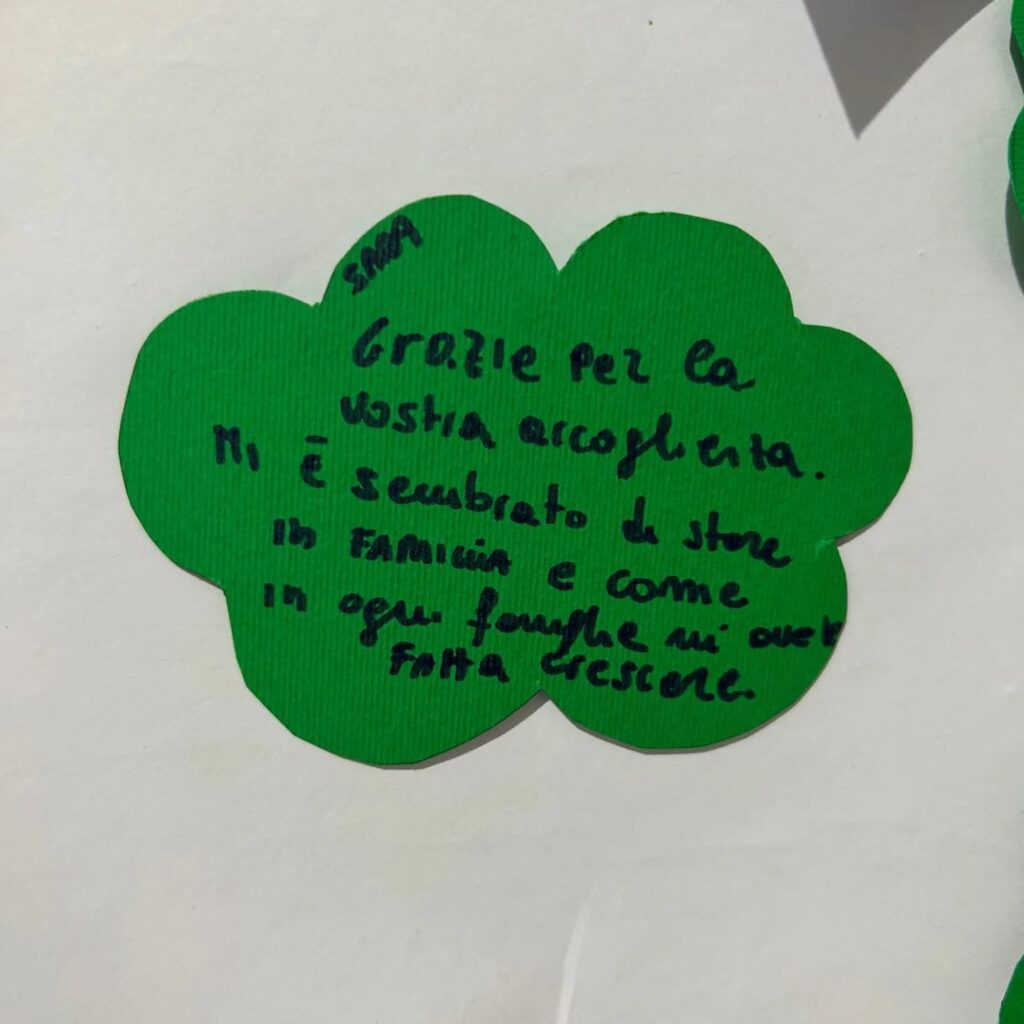 SARA
Grazie per la
vostra accoglienza.
Mi è sembrato di stare
in FAMIGLIA e come
in ogni famiglie mi avete
FATTA crescere.